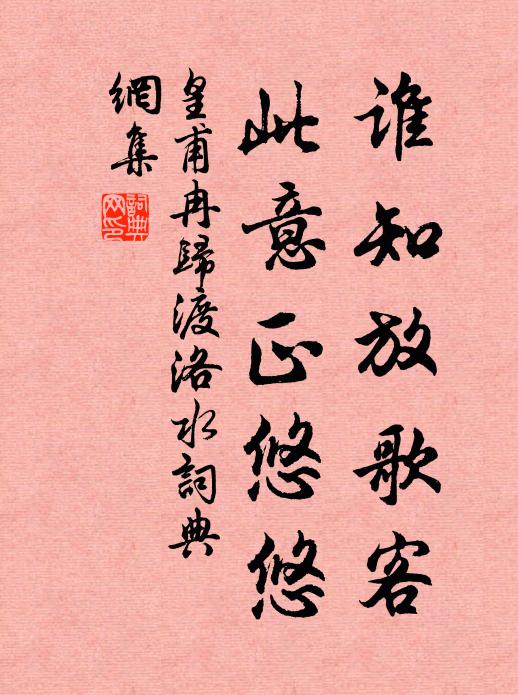 谁知放歌客
此意正悠悠
皇甫冉歸渡洛水詞典
網集
詞典網印